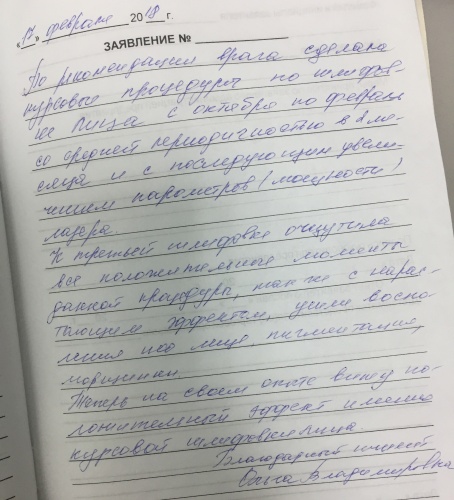 «17» февраля 2018 г.
ЗАЯВЛЕНИЕ №
По рекомендации врага сделала
курсовые процедуры по шлифов-
ке лица с октября по февраль
со средней периодичностью в 2 ме-
сяца и с последующим увели-
чением параметров (мощности)
лазера.
К третьей шлифовке ощутила
все положительные моменты
данной процедуры, так же с нарас-
тающим эффектом, ушли воспа-
ления на лице, пигментация,
морщинки.
Теперь на своем опыте вижу по-
ложительный эффект именно
курсовой шлифовки лица
Благодарный пациент
Владимировна